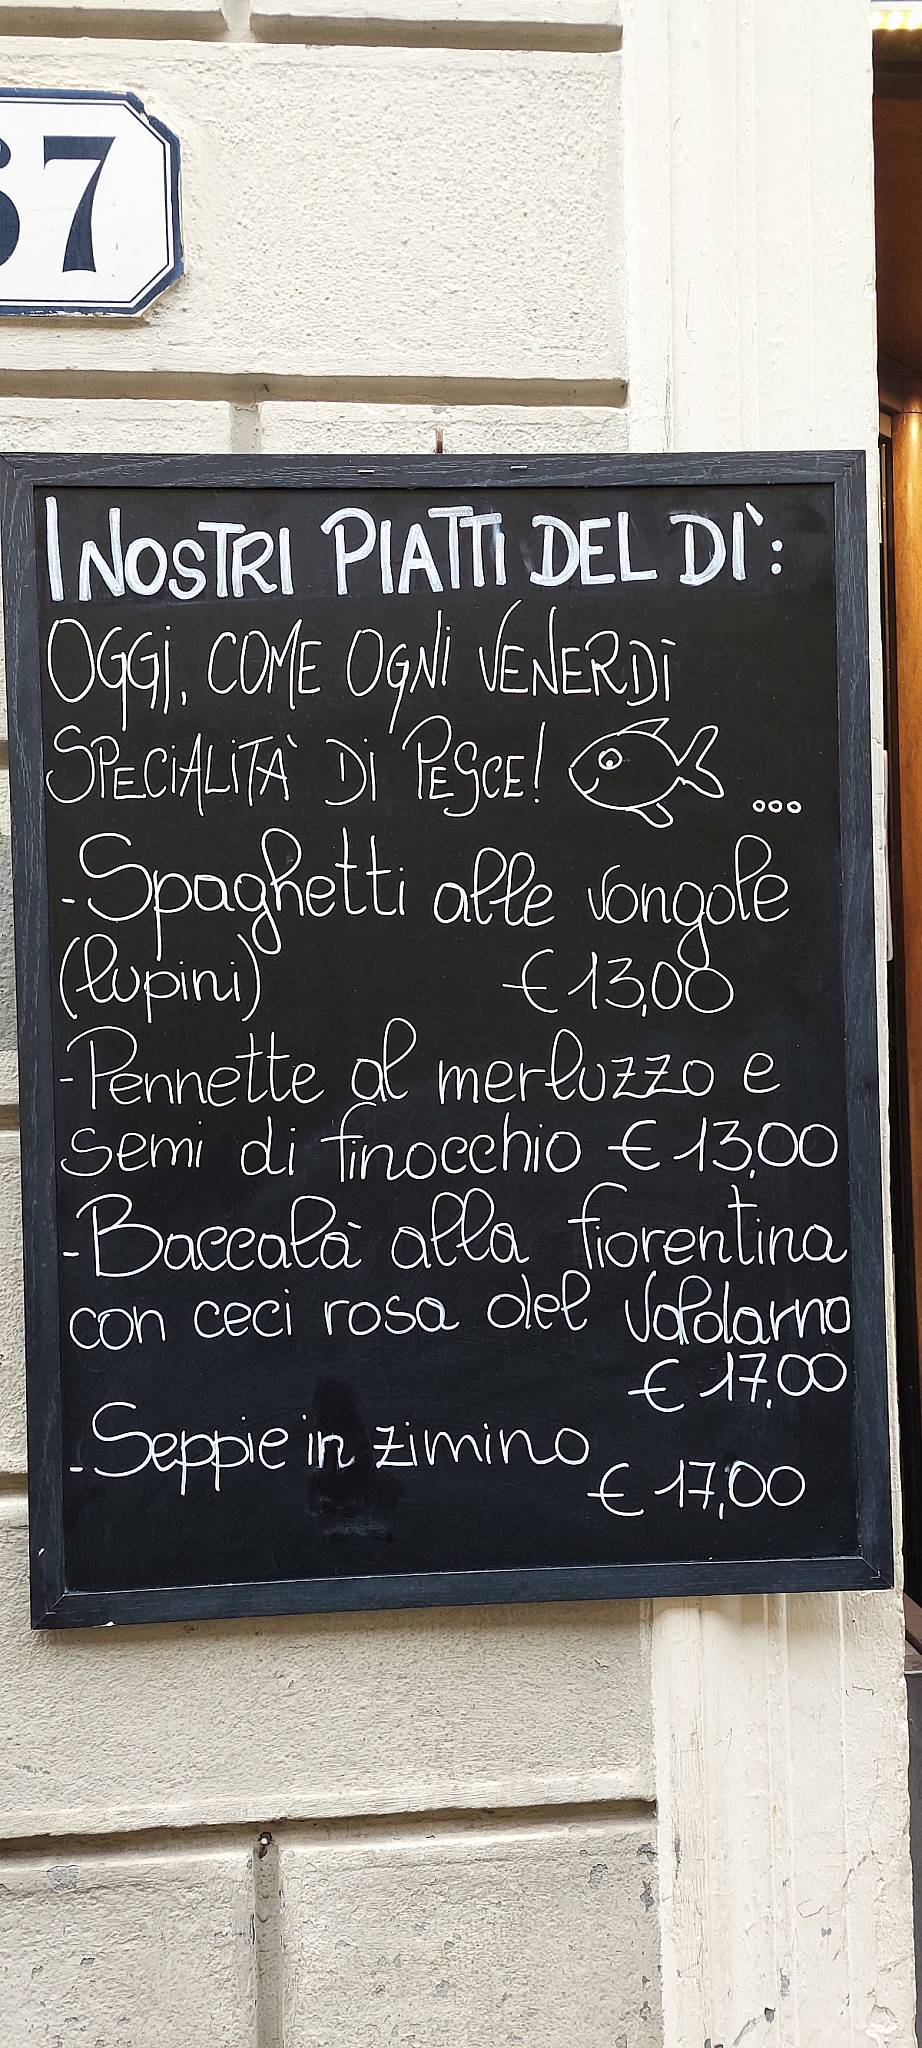 67
I NOSTRI PIATTI DEL DÌ:
OGGI, COME OGNI VENERDÌ
SPECIALITÀ DI PESCE! ...
-Spaghetti alle vongole
(lupini) € 13,00
-Pennette al merluzzo e
semi di finocchio € 13,00
-Baccalà alla fiorentina
con ceci rosa del Valdarno
€ 17,00
-Seppie in zimino
€ 17,00